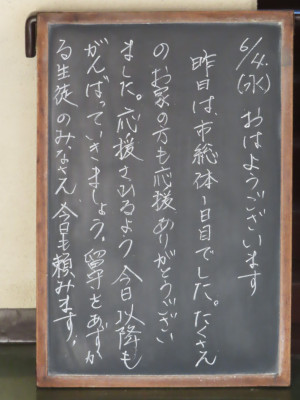 6/4(水) おはようございます
昨日は、市総体1日目でした。たくさん
のお家の方も応援ありがとうござい
ました。応援されるよう今日以降も
がんばっていきましょう。留守をあずか
る生徒のみなさん、今日も頼みます。